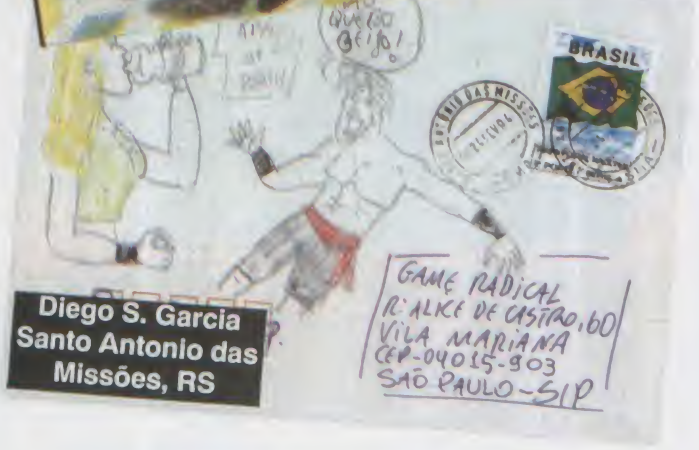 QUERO
BEIJO!
BRASIL
ANTÔNIO DAS MISSÕES
GAME RADICAL
R. ALICE DE CASTRO, 60
VILA MARIANA
CEP-04015-903
SÃO PAULO-S/P
Diego S. Garcia
Santo Antonio das
Missões, RS